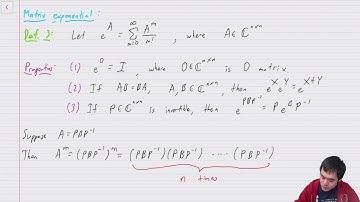 Matrix exponential:
Def. 2: Let e^A = ∑_{m=0}^{∞} A^m/m! , where A∈ℂ^{n×n}
Properties: (1) e^0 = I , where 0∈ℂ^{n×n} is 0 matrix.
(2) If AB=BA, A,B∈ℂ^{n×n}, then e^X e^Y = e^{X+Y}
(3) If P∈ℂ^{n×n} is invertible, then e^{PBP^{-1}} = P e^B P^{-1}
Suppose A=PBP^{-1}
Then A^m = (PBP^{-1})^m = (PBP^{-1})(PBP^{-1}) ····· (PBP^{-1})
n times